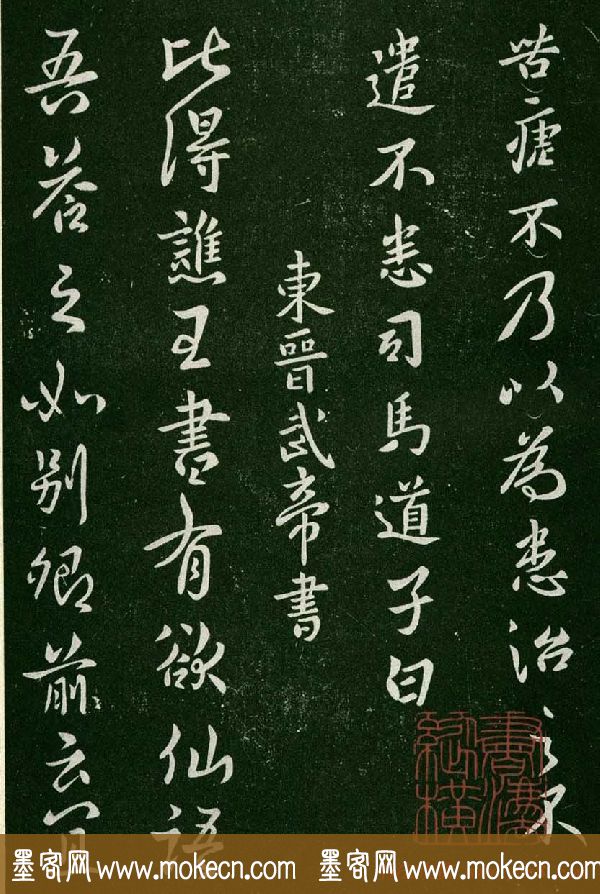 苦瘧不乃以為患治之不
遣不悉司馬道子白
東晉武帝書
比得譙王書有欲仙語
吾答之如別卿前云宜
書法縱橫
墨客网 www.mokecn.com 墨客网 www.mokecn.com